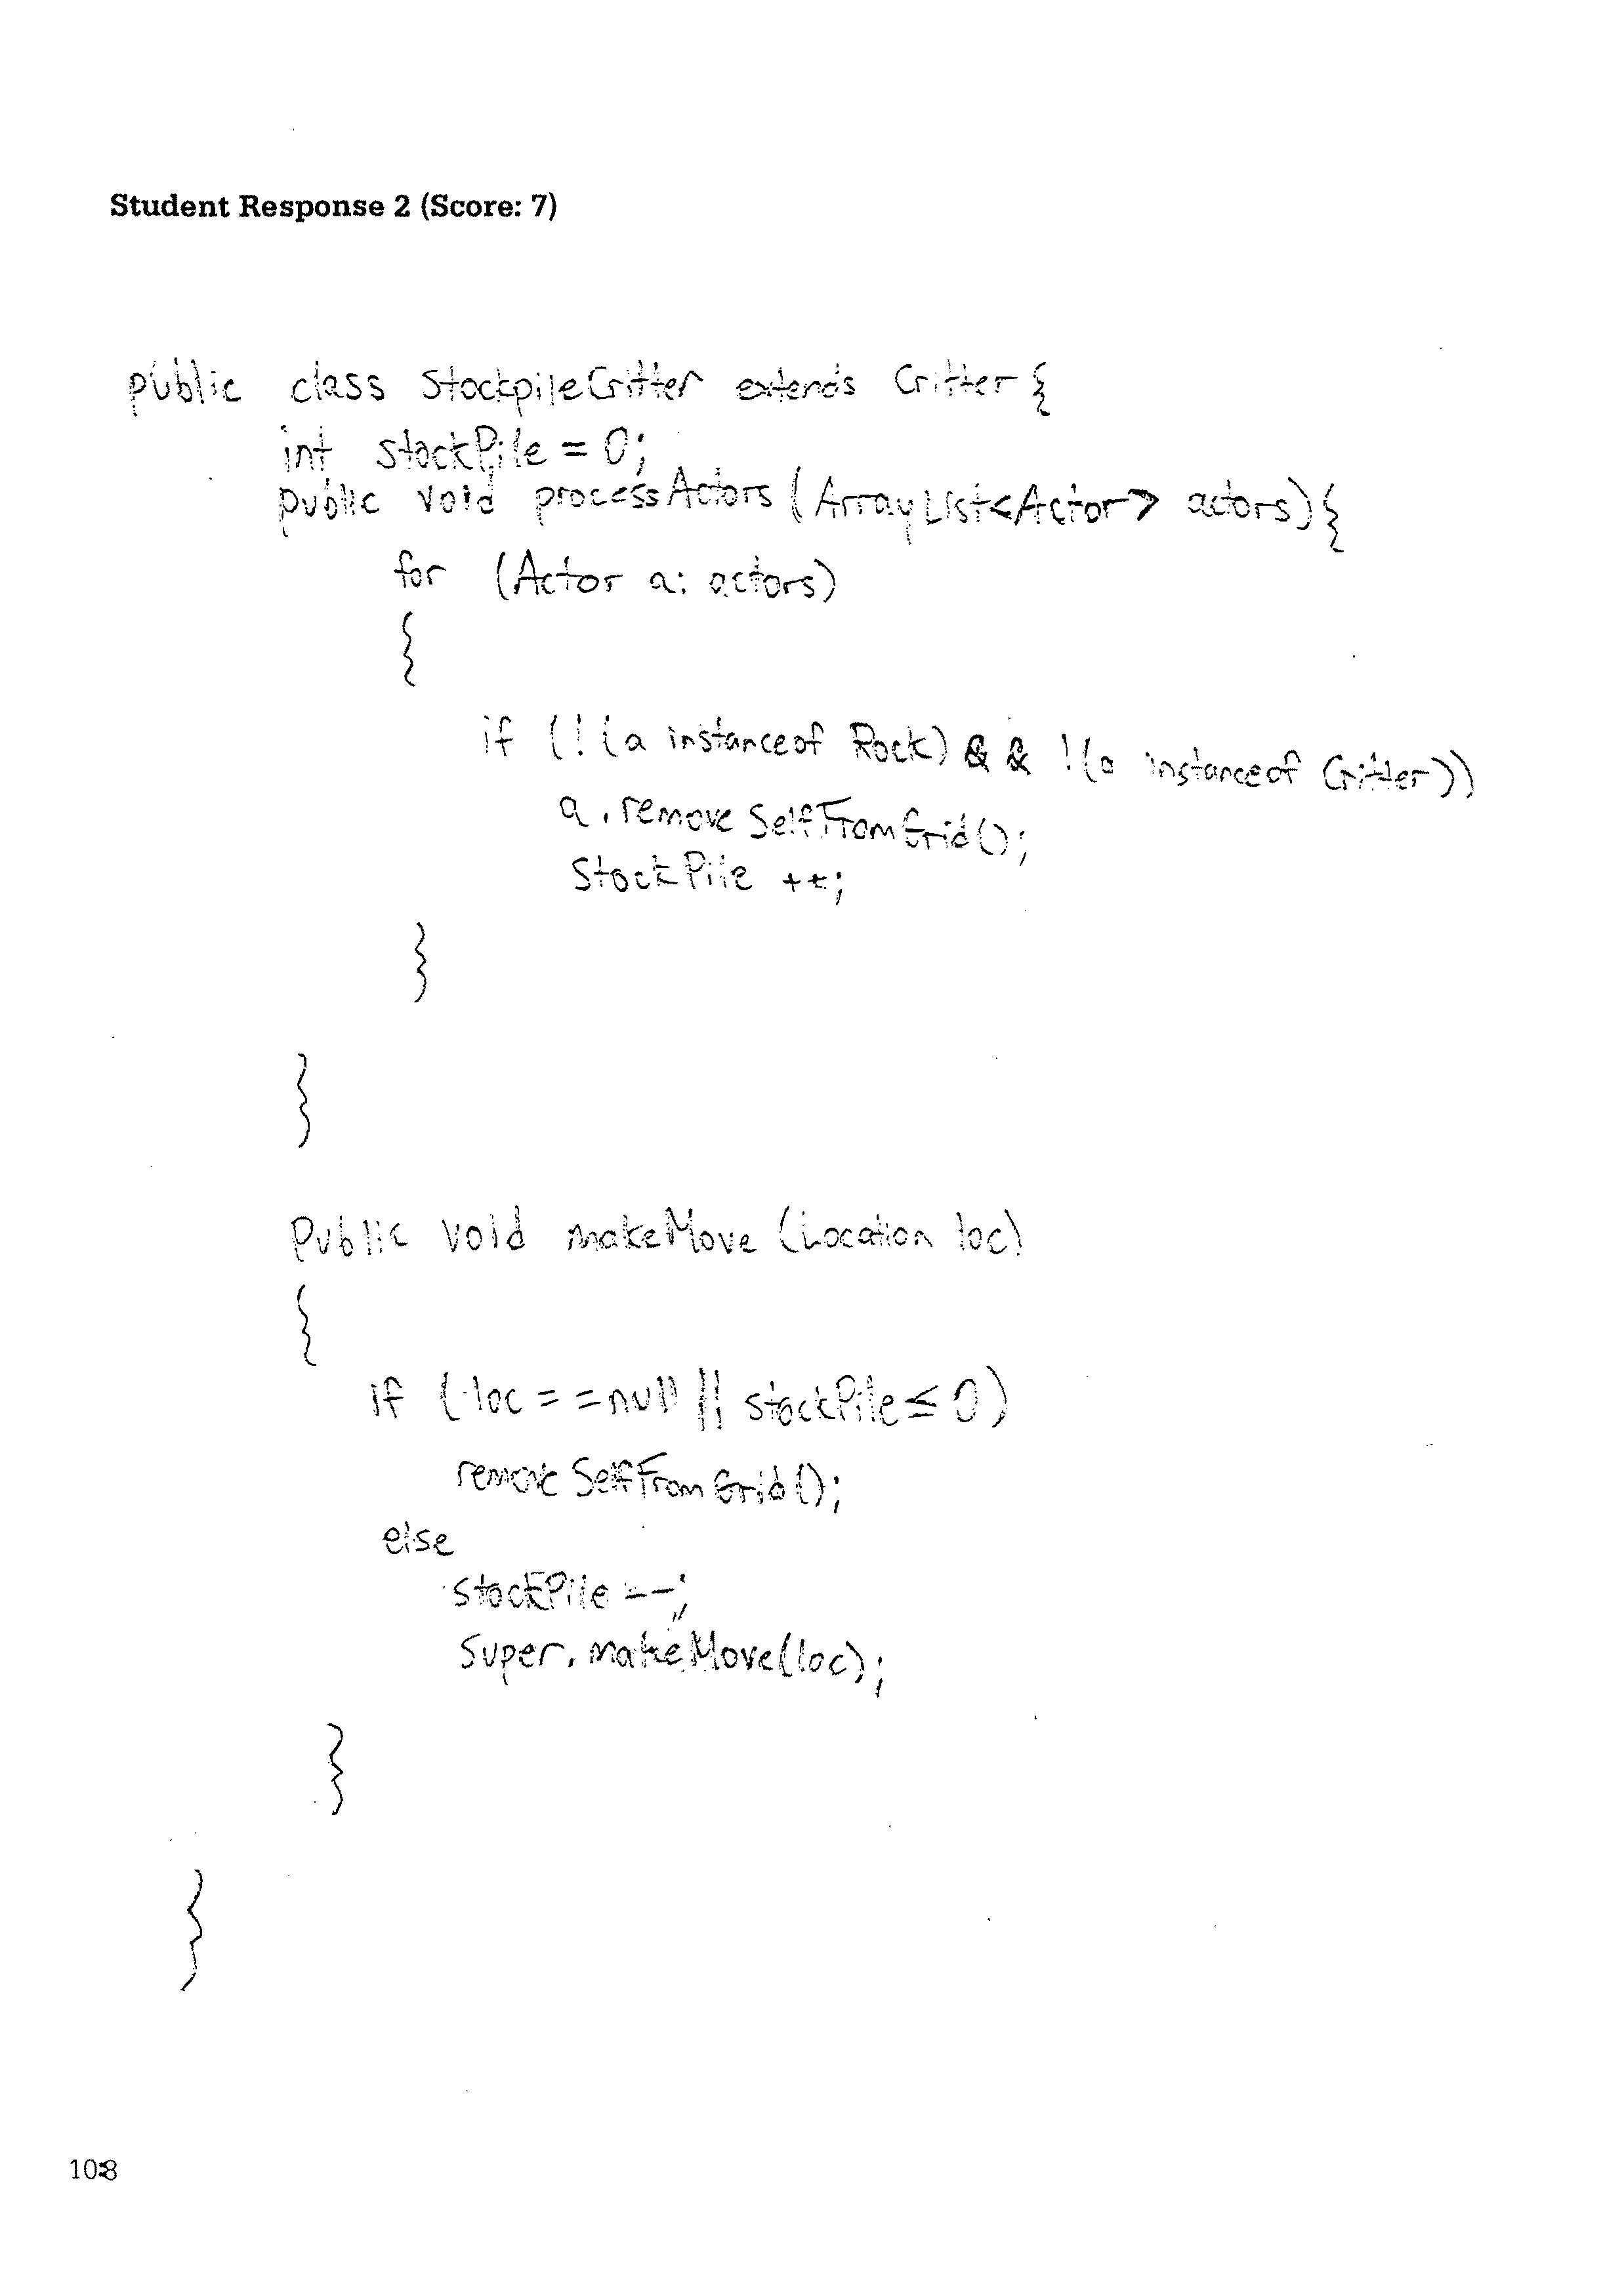 Student Response 2 (Score: 7)
public class StockpileCritter extends Critter {
int stockPile = 0;
public void processActors (ArrayList<Actor> actors) {
for (Actor a: actors)
{
if (!(a instanceof Rock) && !(a instanceof Critter))
a.removeSelfFromGrid();
stockPile ++;
}
}
Public void makeMove (Location loc)
{
if (loc == null || stockPile ≤ 0)
removeSelfFromGrid();
else
stockPile --;
super.makeMove(loc);
}
}